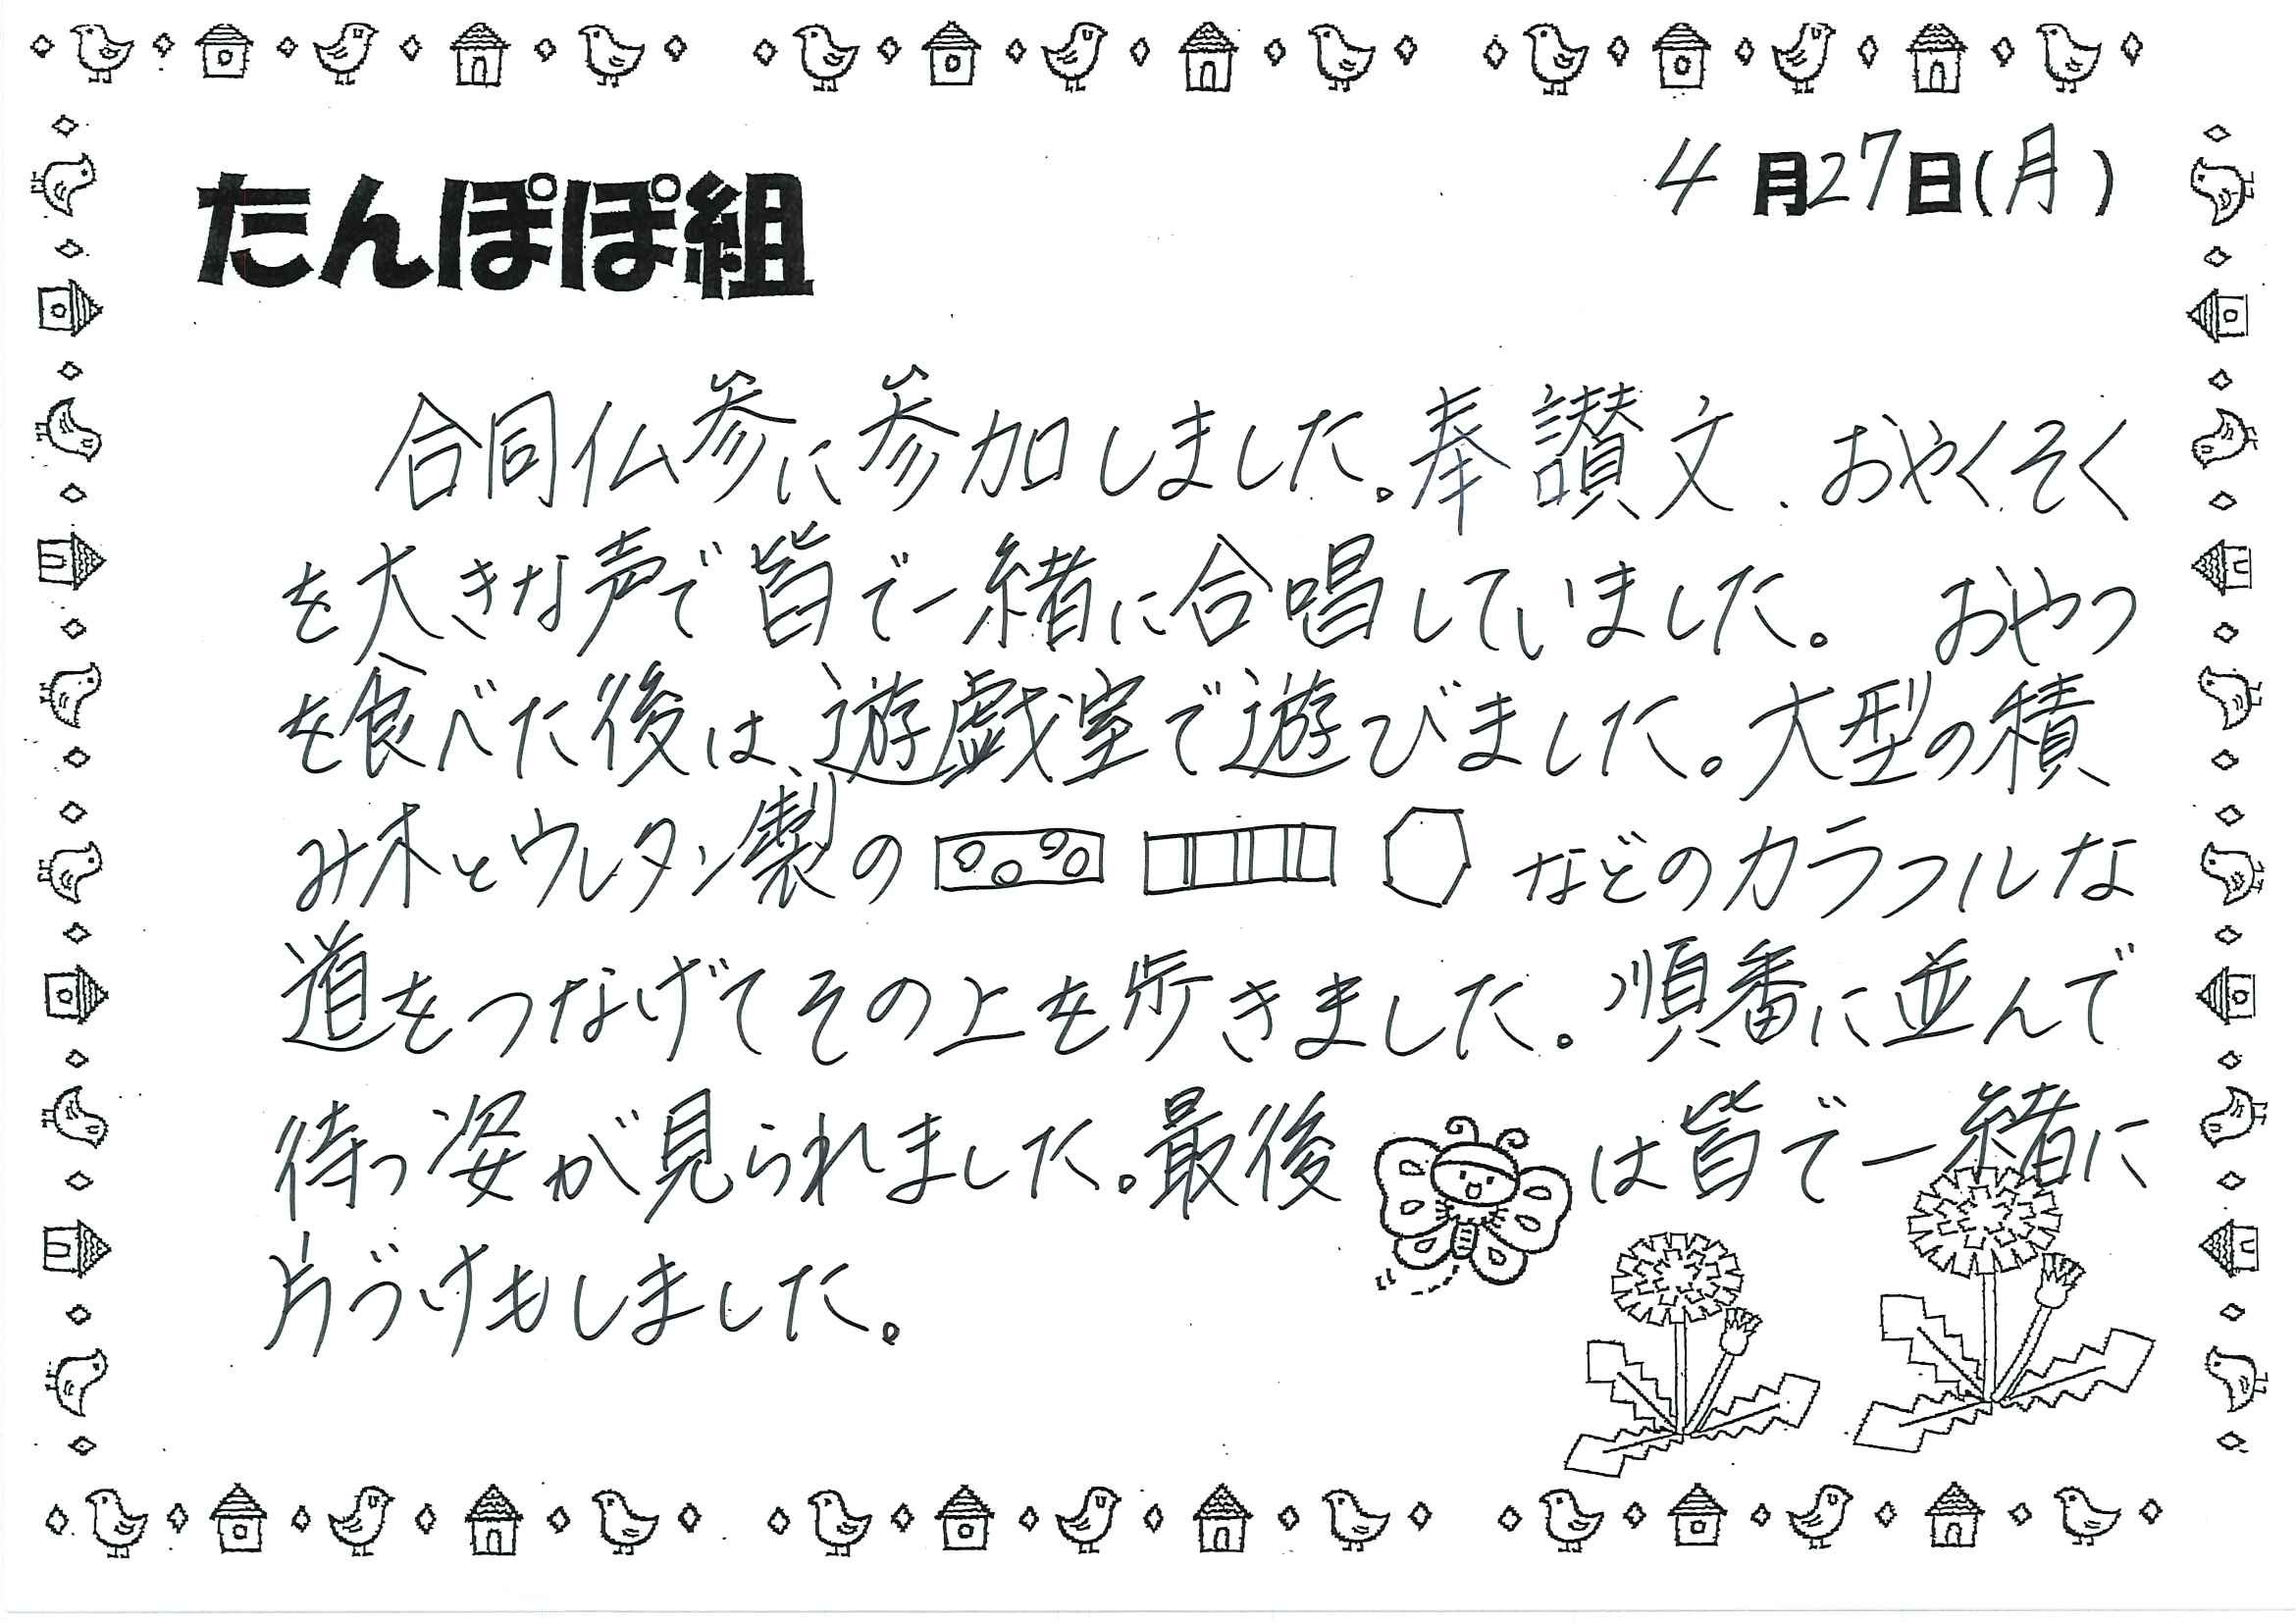 4月27日(月)
たんぽぽ組
合同仏参に参加しました。奉讃文、おやくそく
を大きな声で皆で一緒に合唱していました。 おやつ
を食べた後は、遊戯室で遊びました。大型の積
み木とウレタン製の などのカラフルな
道をつなげてその上を歩きました。順番に並んで
待つ姿が見られました。最後は皆で一緒に
片づけもしました。